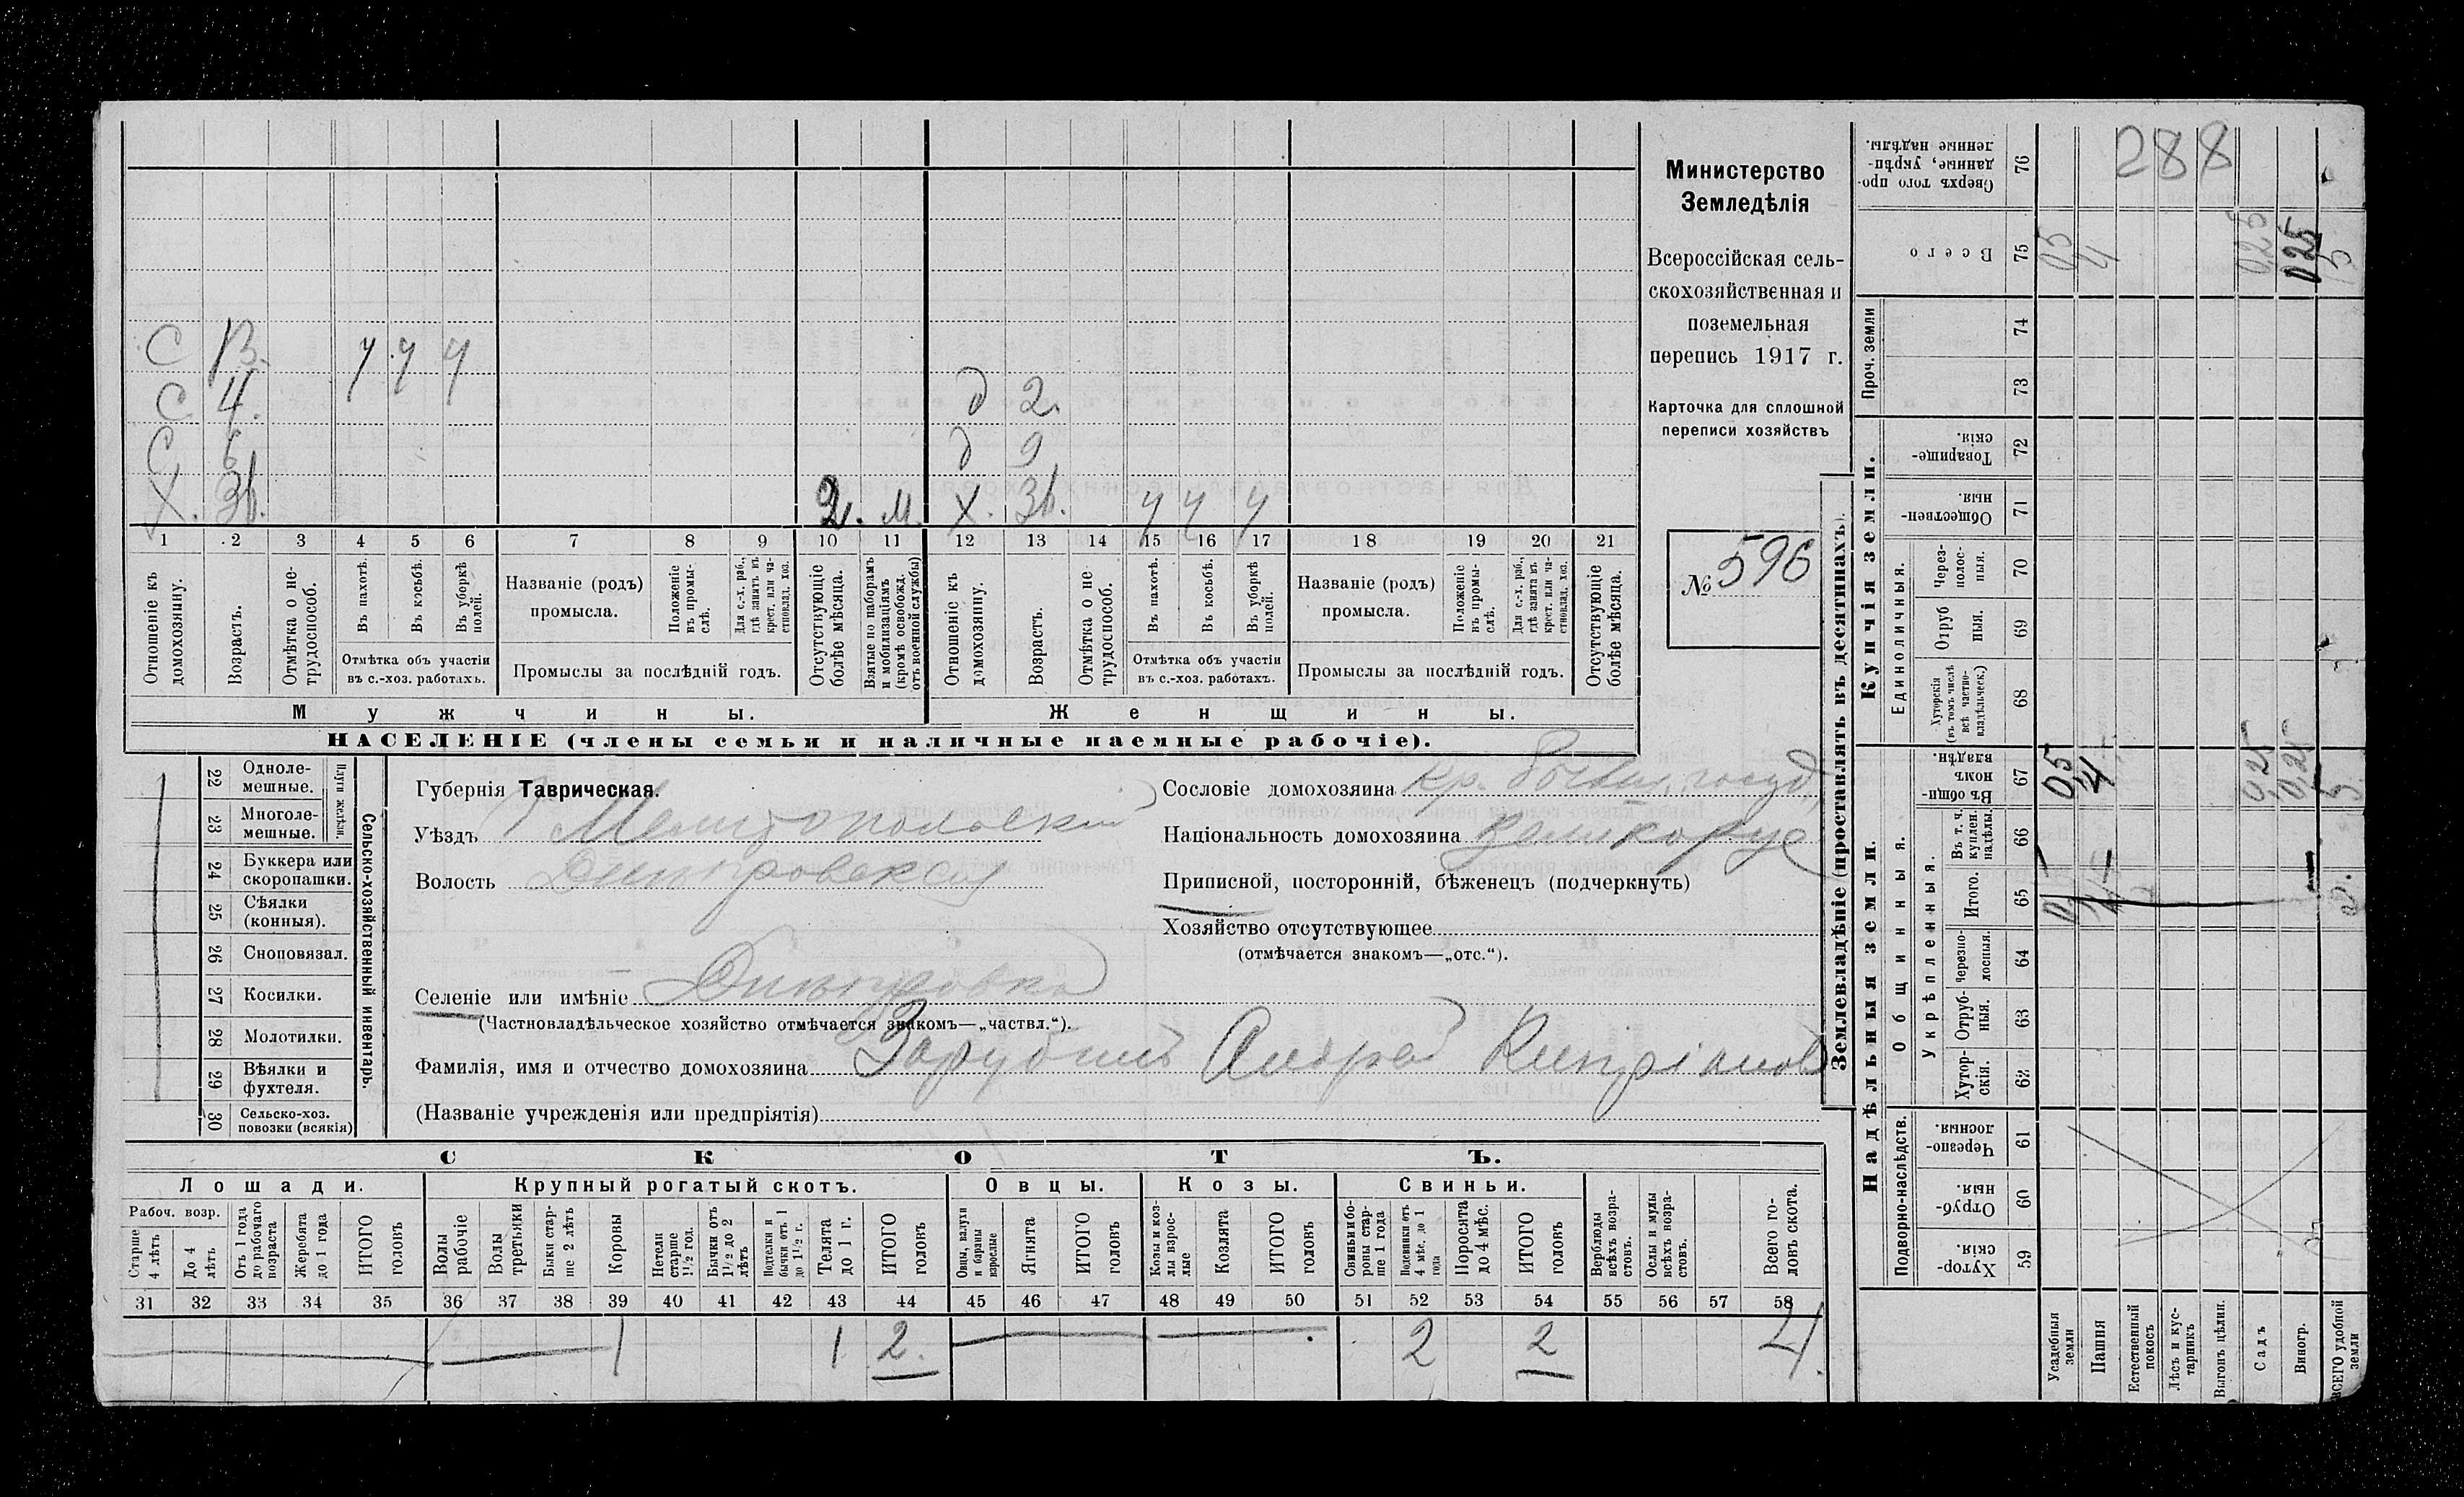 Министерство
Земледѣлія
Всероссійская сель-
скохозяйственная и
поземельная
перепись 1917 г.
Карточка для сплошной
переписи хозяйствъ
№ 596
С 13. ч ч ч
С. 4. д 2.
С 6 д 9
Х. 36. 2. м. Х. 36. ч ч ч
1 2 3 4 5 6 7 8 9 10 11 12 13 14 15 16 17 18 19 20 21
Отношеніе къ домохозяину.
Возрастъ.
Отмѣтка о не-трудоспособ.
Въ пахотѣ.
Въ косьбѣ.
Въ уборкѣ полей.
Отмѣтка объ участіи
въ с.-хоз. работахъ.
Названіе (родъ)
промысла.
Положеніе въ промы-слѣ.
Для с.-х. раб., гдѣ занятъ въ крест. или ча-стновлад. хоз.
Промыслы за послѣдній годъ.
Отсутствующіе болѣе мѣсяца.
Взятые по наборамъ и мобилизаціямъ (кромѣ освобожд. отъ военной службы)
Отношеніе къ домохозяину.
Возрастъ.
Отмѣтка о не трудоспособ.
Въ пахотѣ.
Въ косьбѣ.
Въ уборкѣ полей.
Отмѣтка объ участіи
въ с.-хоз. работахъ.
Названіе (родъ)
промысла.
Положеніе въ промы-слѣ.
Для с.-х. раб., гдѣ занятъ въ крест. или ча-стновлад. хоз.
Промыслы за послѣдній годъ.
Отсутствующіе болѣе мѣсяца.
Мужчины. Женщины.
НАСЕЛЕНІЕ (члены семьи и наличные наемные рабочіе).
Сельско-хозяйственный инвентарь.
Плуги желѣзн.
22 Одноле-мешные.
23 Многоле-мешные.
24 Буккера или скоропашки.
25 Сѣялки (конныя).
26 Сноповязал.
27 Косилки.
28 Молотилки.
29 Вѣялки и фухтеля.
30 Сельско-хоз. повозки (всякія)
Губернія Таврическая.
Уѣздъ Мелитопольскій
Волость Днѣпровская
Селеніе или имѣніе Днѣпровка
(Частновладѣльческое хозяйство отмѣчается знакомъ—„частвл.“).
Фамилія, имя и отчество домохозяина Зарубинъ Андрей Кипріанов
(Названіе учрежденія или предпріятія)
Сословіе домохозяина кр. бывш. госуд.
Національность домохозяина великорус
Приписной, посторонній, бѣженецъ (подчеркнуть)
Хозяйство отсутствующее
(отмѣчается знакомъ—„отс.“).
СКОТЪ.
Лошади. Крупный рогатый скотъ. Овцы. Козы. Свиньи.
Рабоч. возр.
Старше 4 лѣтъ
До 4 лѣтъ
Отъ 1 года до рабочаго возраста
Жеребята до 1 года
ИТОГО головъ
Волы рабочіе
Волы третьяки
Быки стар-ше 2 лѣтъ
Коровы
Нетели старше 1½ год.
Бычки отъ 1½ до 2 лѣтъ
Подтелки и бычки отъ 1 до 1½ г.
Телята до 1 г.
ИТОГО головъ
Овцы, валухи и бараны взрослые
Ягнята
ИТОГО головъ
Козы и коз-лы взрос-лые
Козлята
ИТОГО головъ
Свиньи и бо-ровы стар-ше 1 года
Подсвинки отъ 4 мѣс. до 1 года
Поросята до 4 мѣс.
ИТОГО головъ
Верблюды всѣхъ возра-стовъ.
Ослы и мулы всѣхъ возра-стовъ.
Всего го-ловъ скота.
31 32 33 34 35 36 37 38 39 40 41 42 43 44 45 46 47 48 49 50 51 52 53 54 55 56 57 58
1 1 2. 2 2 4.
Землевладѣніе (проставлять въ десятинахъ).
Купчія земли.
Надѣльныя земли.
Сверхъ того про-данные, укрѣп-ленные надѣлы. 76 288
Всего 75 05 4 025 025 5
Проч. земли 74
73
Товарище-скія. 72
Обществен-ныя. 71
Единоличныя.
Через-полос-ныя. 70
Отруб ныя. 69
Хуторскія (въ томъ числѣ всѣ частно-владѣльческ.) 68
Общинныя.
Въ общин-номъ владѣн. 67 05 4 0,25 0,25 5.
Укрѣпленныя.
Въ т. ч. куплен. надѣлы. 66
Итого. 65
Черезпо-лосныя. 64
Отруб-ныя. 63
Хутор-скія. 62
Подворно-наслѣдств.
Черезпо-лосныя. 61
Отруб-ныя. 60
Хутор-скія. 59
Усадебныя земли
Пашня
Естественный покосъ
Лѣсъ и кус-тарникъ
Выгонъ цѣлин.
Садъ
Виногр.
ВСЕГО удобной земли